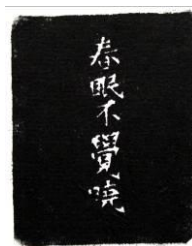 春眠不覺曉